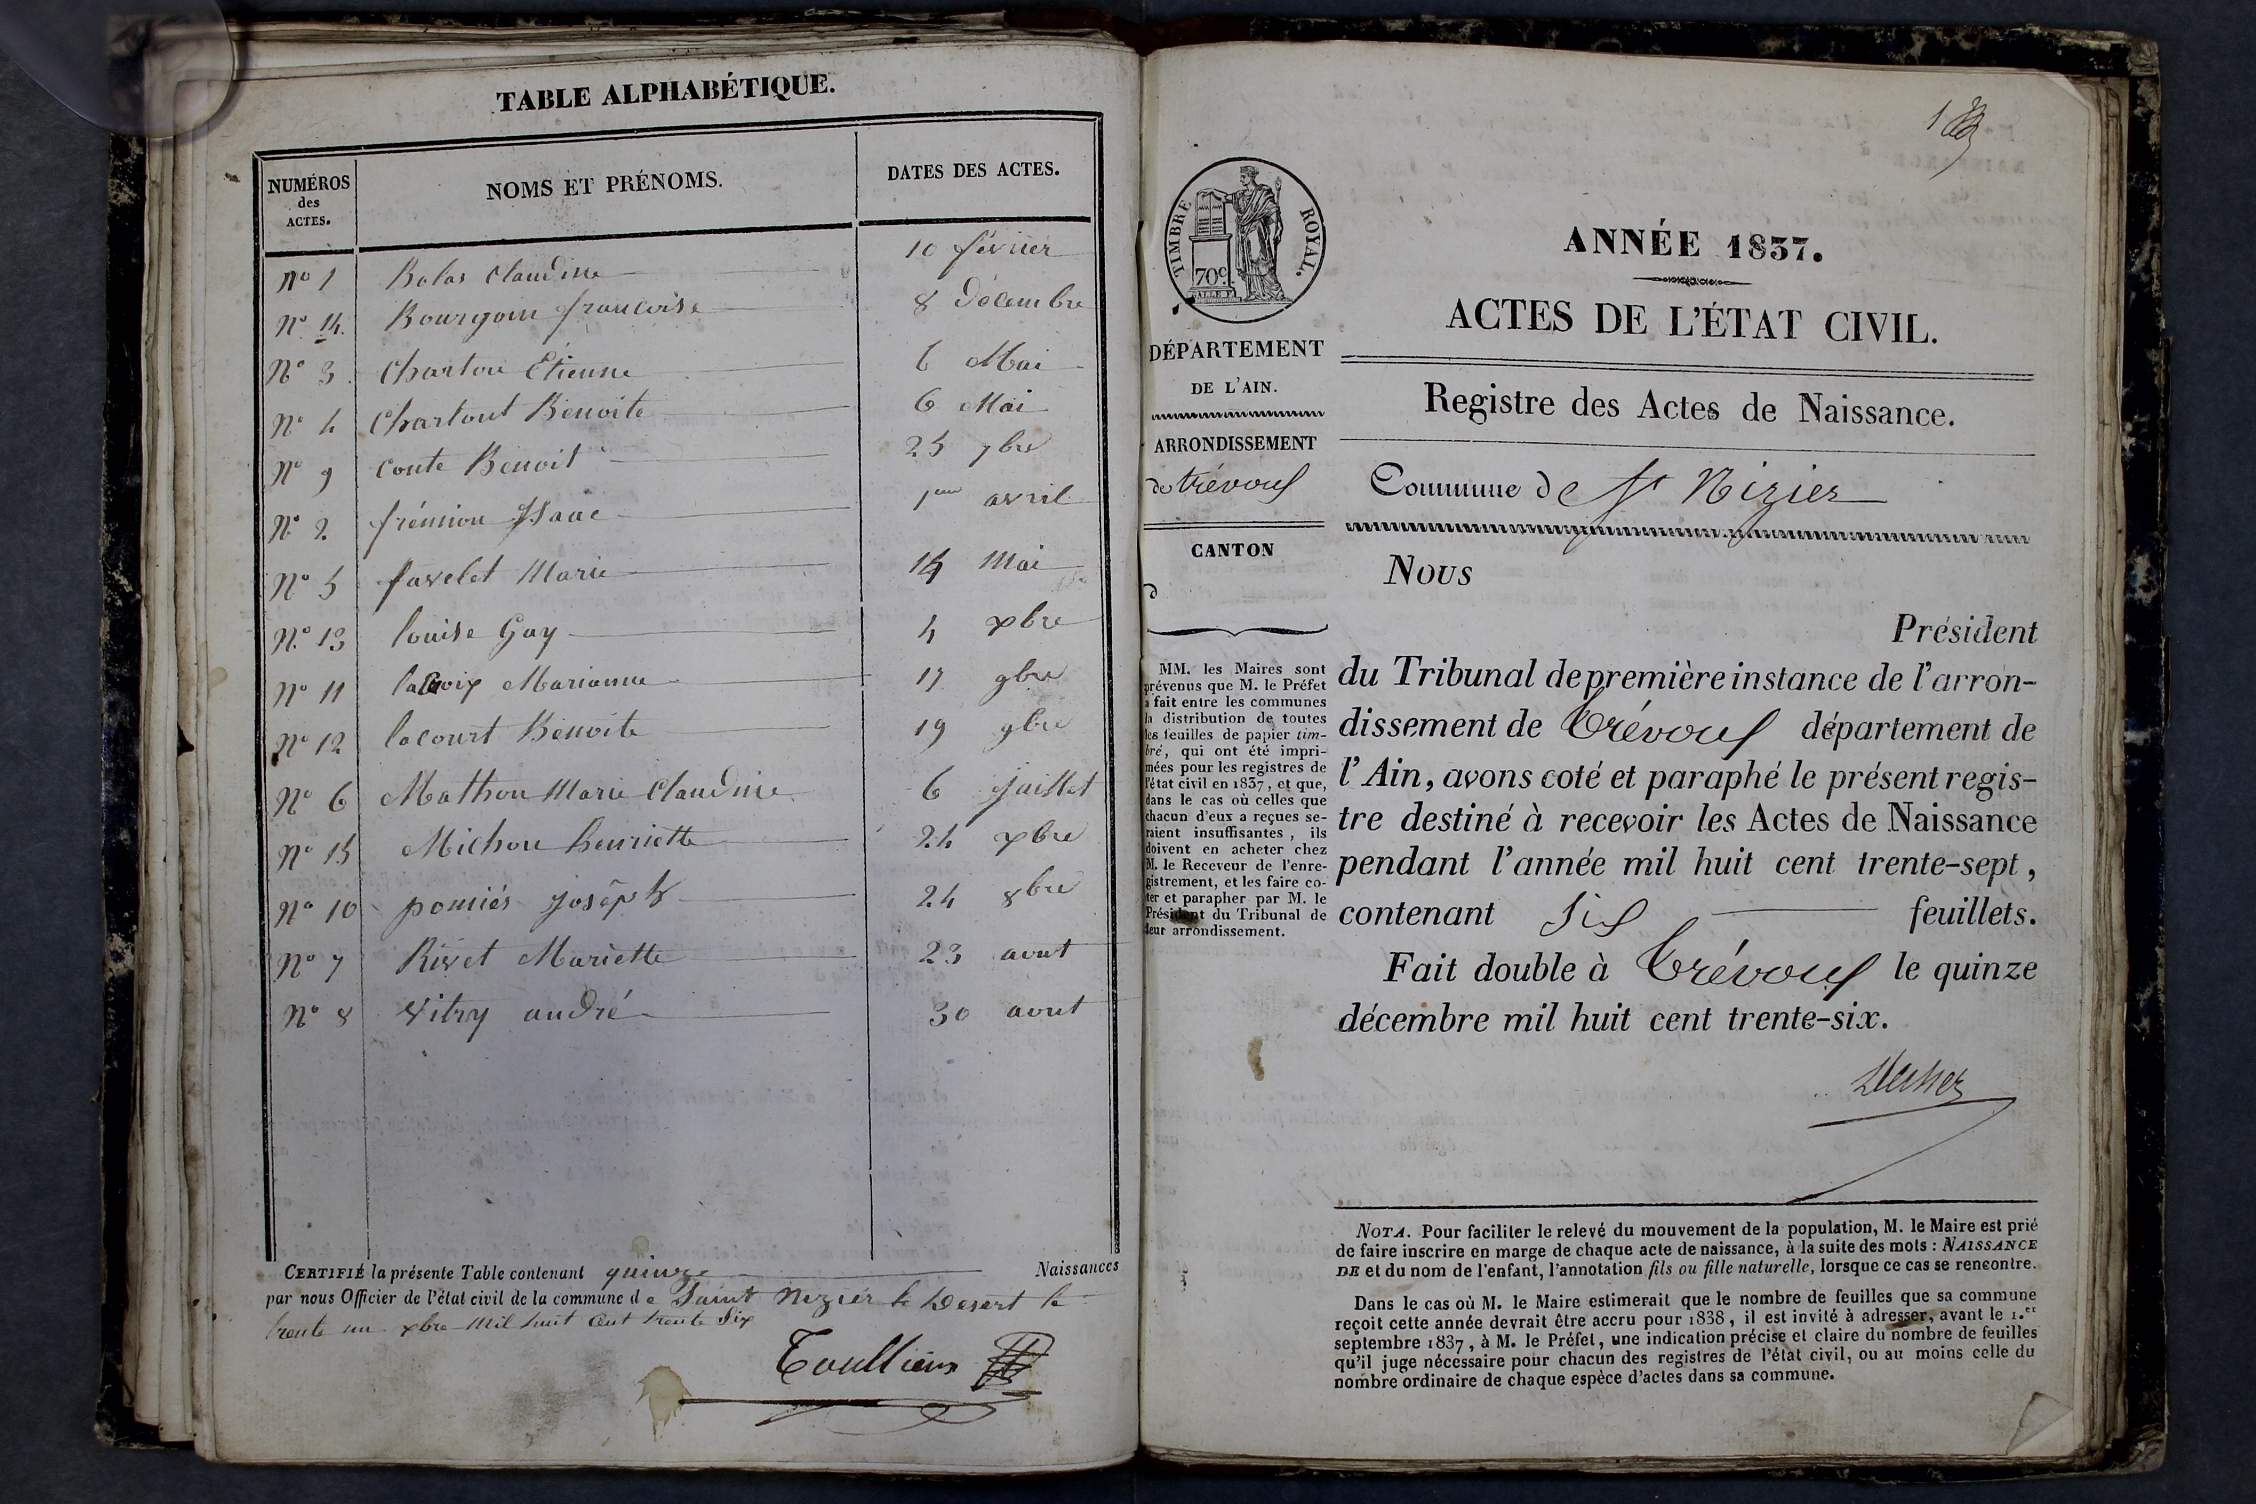 TABLE ALPHABÉTIQUE.
NUMÉROS
des
ACTES.
NOMS ET PRÉNOMS.
DATES DES ACTES.
No 1 Bolas Claudine 10 février
No 14. Bourgoin françoise 8 décembre
No 3 Charton Etienne 6 Mai
No 4 Chartout Benoite 6 Mai
No 9 Conte Benoit 25 7bre
No 2 frémion Isaac 1er avril
No 5 favelet Marie 14 Mai
No 13 louise Gay 4 xbre
No 11 laCroix Marianne 17 9bre
No 12 lacourt Benoite 19 9bre
No 6 Mathon Marie Claudine 6 juillet
No 15 Michon henriette 24 xbre
No 10 pomiés joseph 24 8bre
No 7 Rivet Mariette 23 aout
No 8 Vitry andré 30 aout
CERTIFIÉ la présente Table contenant quinze Naissances
par nous Officier de l'état civil de la commune de Saint Nizier le Desert le
trente un xbre Mil huit Cent trente Six
TIMBRE ROYAL.
70c.
DÉPARTEMENT
DE L'AIN.
ARRONDISSEMENT
de trévoux
CANTON
d
MM. les Maires sont
prévenus que M. le Préfet
a fait entre les communes
la distribution de toutes
les feuilles de papier tim-
bré, qui ont été impri-
mées pour les registres de
l'état civil en 1837, et que,
dans le cas où celles que
chacun d'eux a reçues se-
raient insuffisantes, ils
doivent en acheter chez
M. le Receveur de l'enre-
gistrement, et les faire co-
ter et parapher par M. le
Président du Tribunal de
leur arrondissement.
ANNÉE 1837.
ACTES DE L'ÉTAT CIVIL.
Registre des Actes de Naissance.
Commune de St Nizier
NOUS
Président
du Tribunal de première instance de l'arron-
dissement de Trévoux département de
l'Ain, avons coté et paraphé le présent regis-
tre destiné à recevoir les Actes de Naissance
pendant l'année mil huit cent trente-sept,
contenant Six feuillets.
Fait double à Trévoux le quinze
décembre mil huit cent trente-six.
NOTA. Pour faciliter le relevé du mouvement de la population, M. le Maire est prié
de faire inscrire en marge de chaque acte de naissance, à la suite des mots : NAISSANCE
DE et du nom de l'enfant, l'annotation fils ou fille naturelle, lorsque ce cas se rencontre.
Dans le cas où M. le Maire estimerait que le nombre de feuilles que sa commune
reçoit cette année devrait être accru pour 1838, il est invité à adresser, avant le 1.er
septembre 1837, à M. le Préfet, une indication précise et claire du nombre de feuilles
qu'il juge nécessaire pour chacun des registres de l'état civil, ou au moins celle du
nombre ordinaire de chaque espèce d'actes dans sa commune.